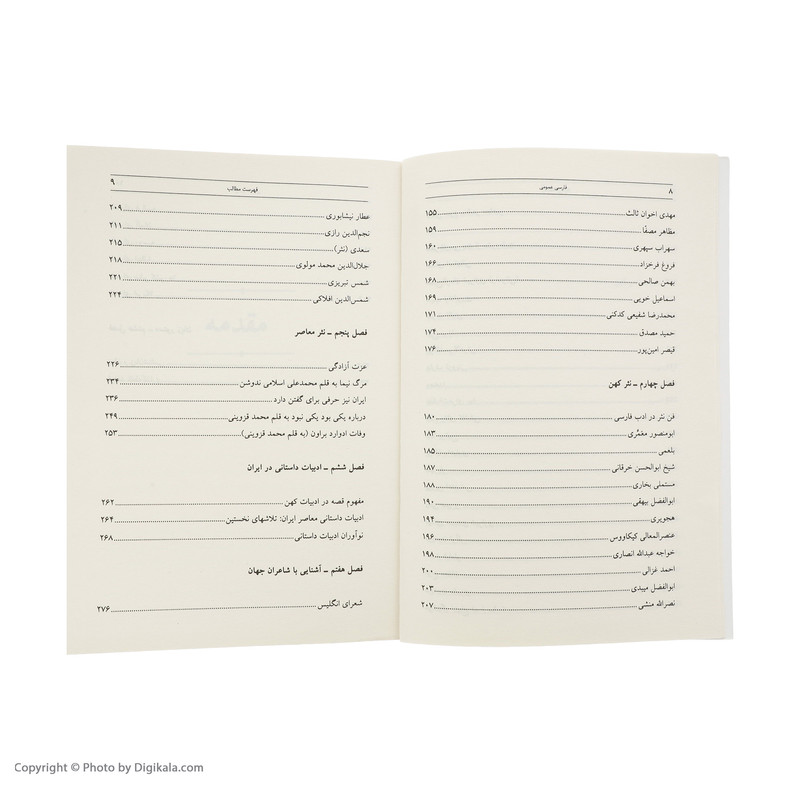 ۸ فارسی عمومی
مهدی اخوان ثالث ۱۵۵
مظاهر مصفّا ۱۵۹
سهراب سپهری ۱۶۰
فروغ فرخزاد ۱۶۶
بهمن صالحی ۱۶۸
اسماعیل خویی ۱۶۹
محمدرضا شفیعی کدکنی ۱۷۱
حمید مصدق ۱۷۴
قیصر امین‌پور ۱۷۶
فصل چهارم ـ نثر کهن
فن نثر در ادب فارسی ۱۸۰
ابومنصور مَعْمَری ۱۸۳
بلعمی ۱۸۵
شیخ ابوالحسن خرقانی ۱۸۷
مستملی بخاری ۱۸۸
ابوالفضل بیهقی ۱۹۰
هجویری ۱۹۴
عنصرالمعالی کیکاووس ۱۹۶
خواجه عبدالله انصاری ۱۹۸
احمد غزالی ۲۰۰
ابوالفضل میبدی ۲۰۳
نصرالله منشی ۲۰۷
فهرست مطالب ۹
عطار نیشابوری ۲۰۹
نجم‌الدین رازی ۲۱۱
سعدی (نثر) ۲۱۵
جلال‌الدین محمد مولوی ۲۱۸
شمس تبریزی ۲۲۱
شمس‌الدین افلاکی ۲۲۴
فصل پنجم ـ نثر معاصر
عزت آزادگی ۲۲۶
مرگ نیما به قلم محمدعلی اسلامی ندوشن ۲۳۴
ایران نیز حرفی برای گفتن دارد ۲۳۶
درباره یکی بود یکی نبود به قلم محمد قزوینی ۲۴۹
وفات ادوارد براون (به قلم محمد قزوینی) ۲۵۳
فصل ششم ـ ادبیات داستانی در ایران
مفهوم قصه در ادبیات کهن ۲۶۲
ادبیات داستانی معاصر ایران: تلاشهای نخستین ۲۶۴
نوآوران ادبیات داستانی ۲۶۸
فصل هفتم ـ آشنایی با شاعران جهان
شعرای انگلیس ۲۷۶
Copyright © Photo by Digikala.com